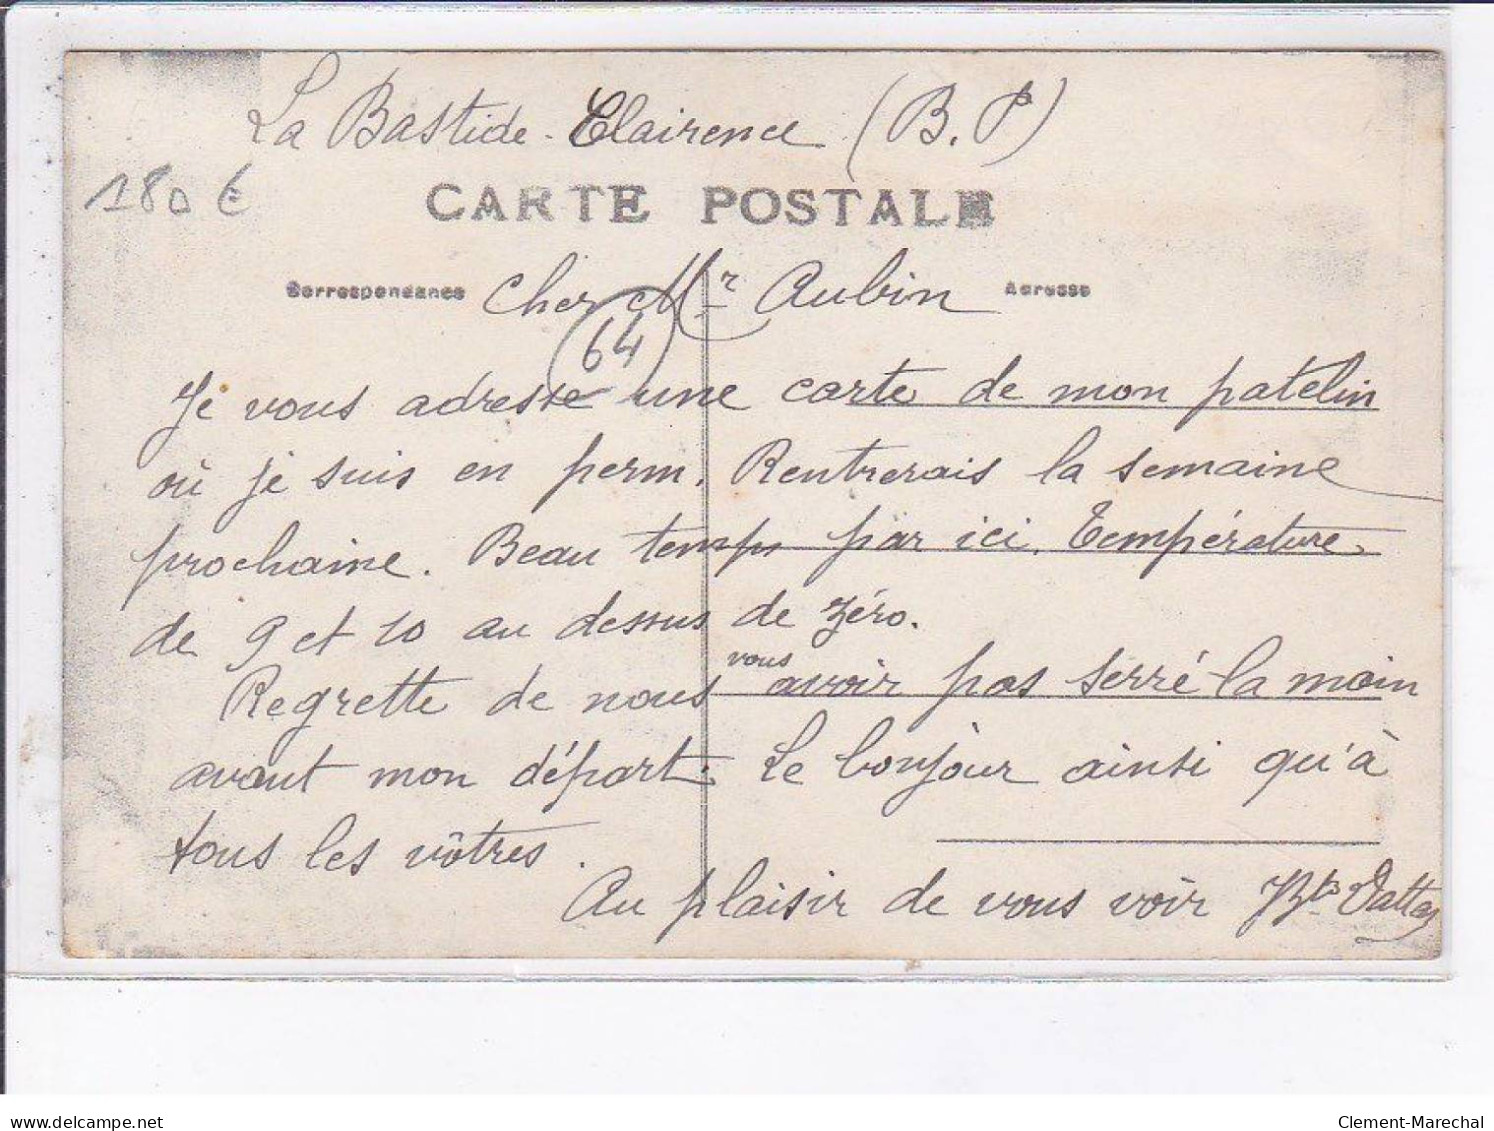 La Bastide-Clairence (B.P)
180 €
CARTE POSTALE
Correspondance Cher Mr Aubin Adresse
64
Je vous adresse une carte de mon patelin
où je suis en perm. Rentrerais la semaine
prochaine. Beau temps par ici. Température
de 9 et 10 au dessus de zéro.
Regrette de nous vous avoir pas serré la main
avant mon départ. Le bonjour ainsi qu'à
tous les vôtres.
Au plaisir de vous voir
delcampe.net
Clement-Marechal